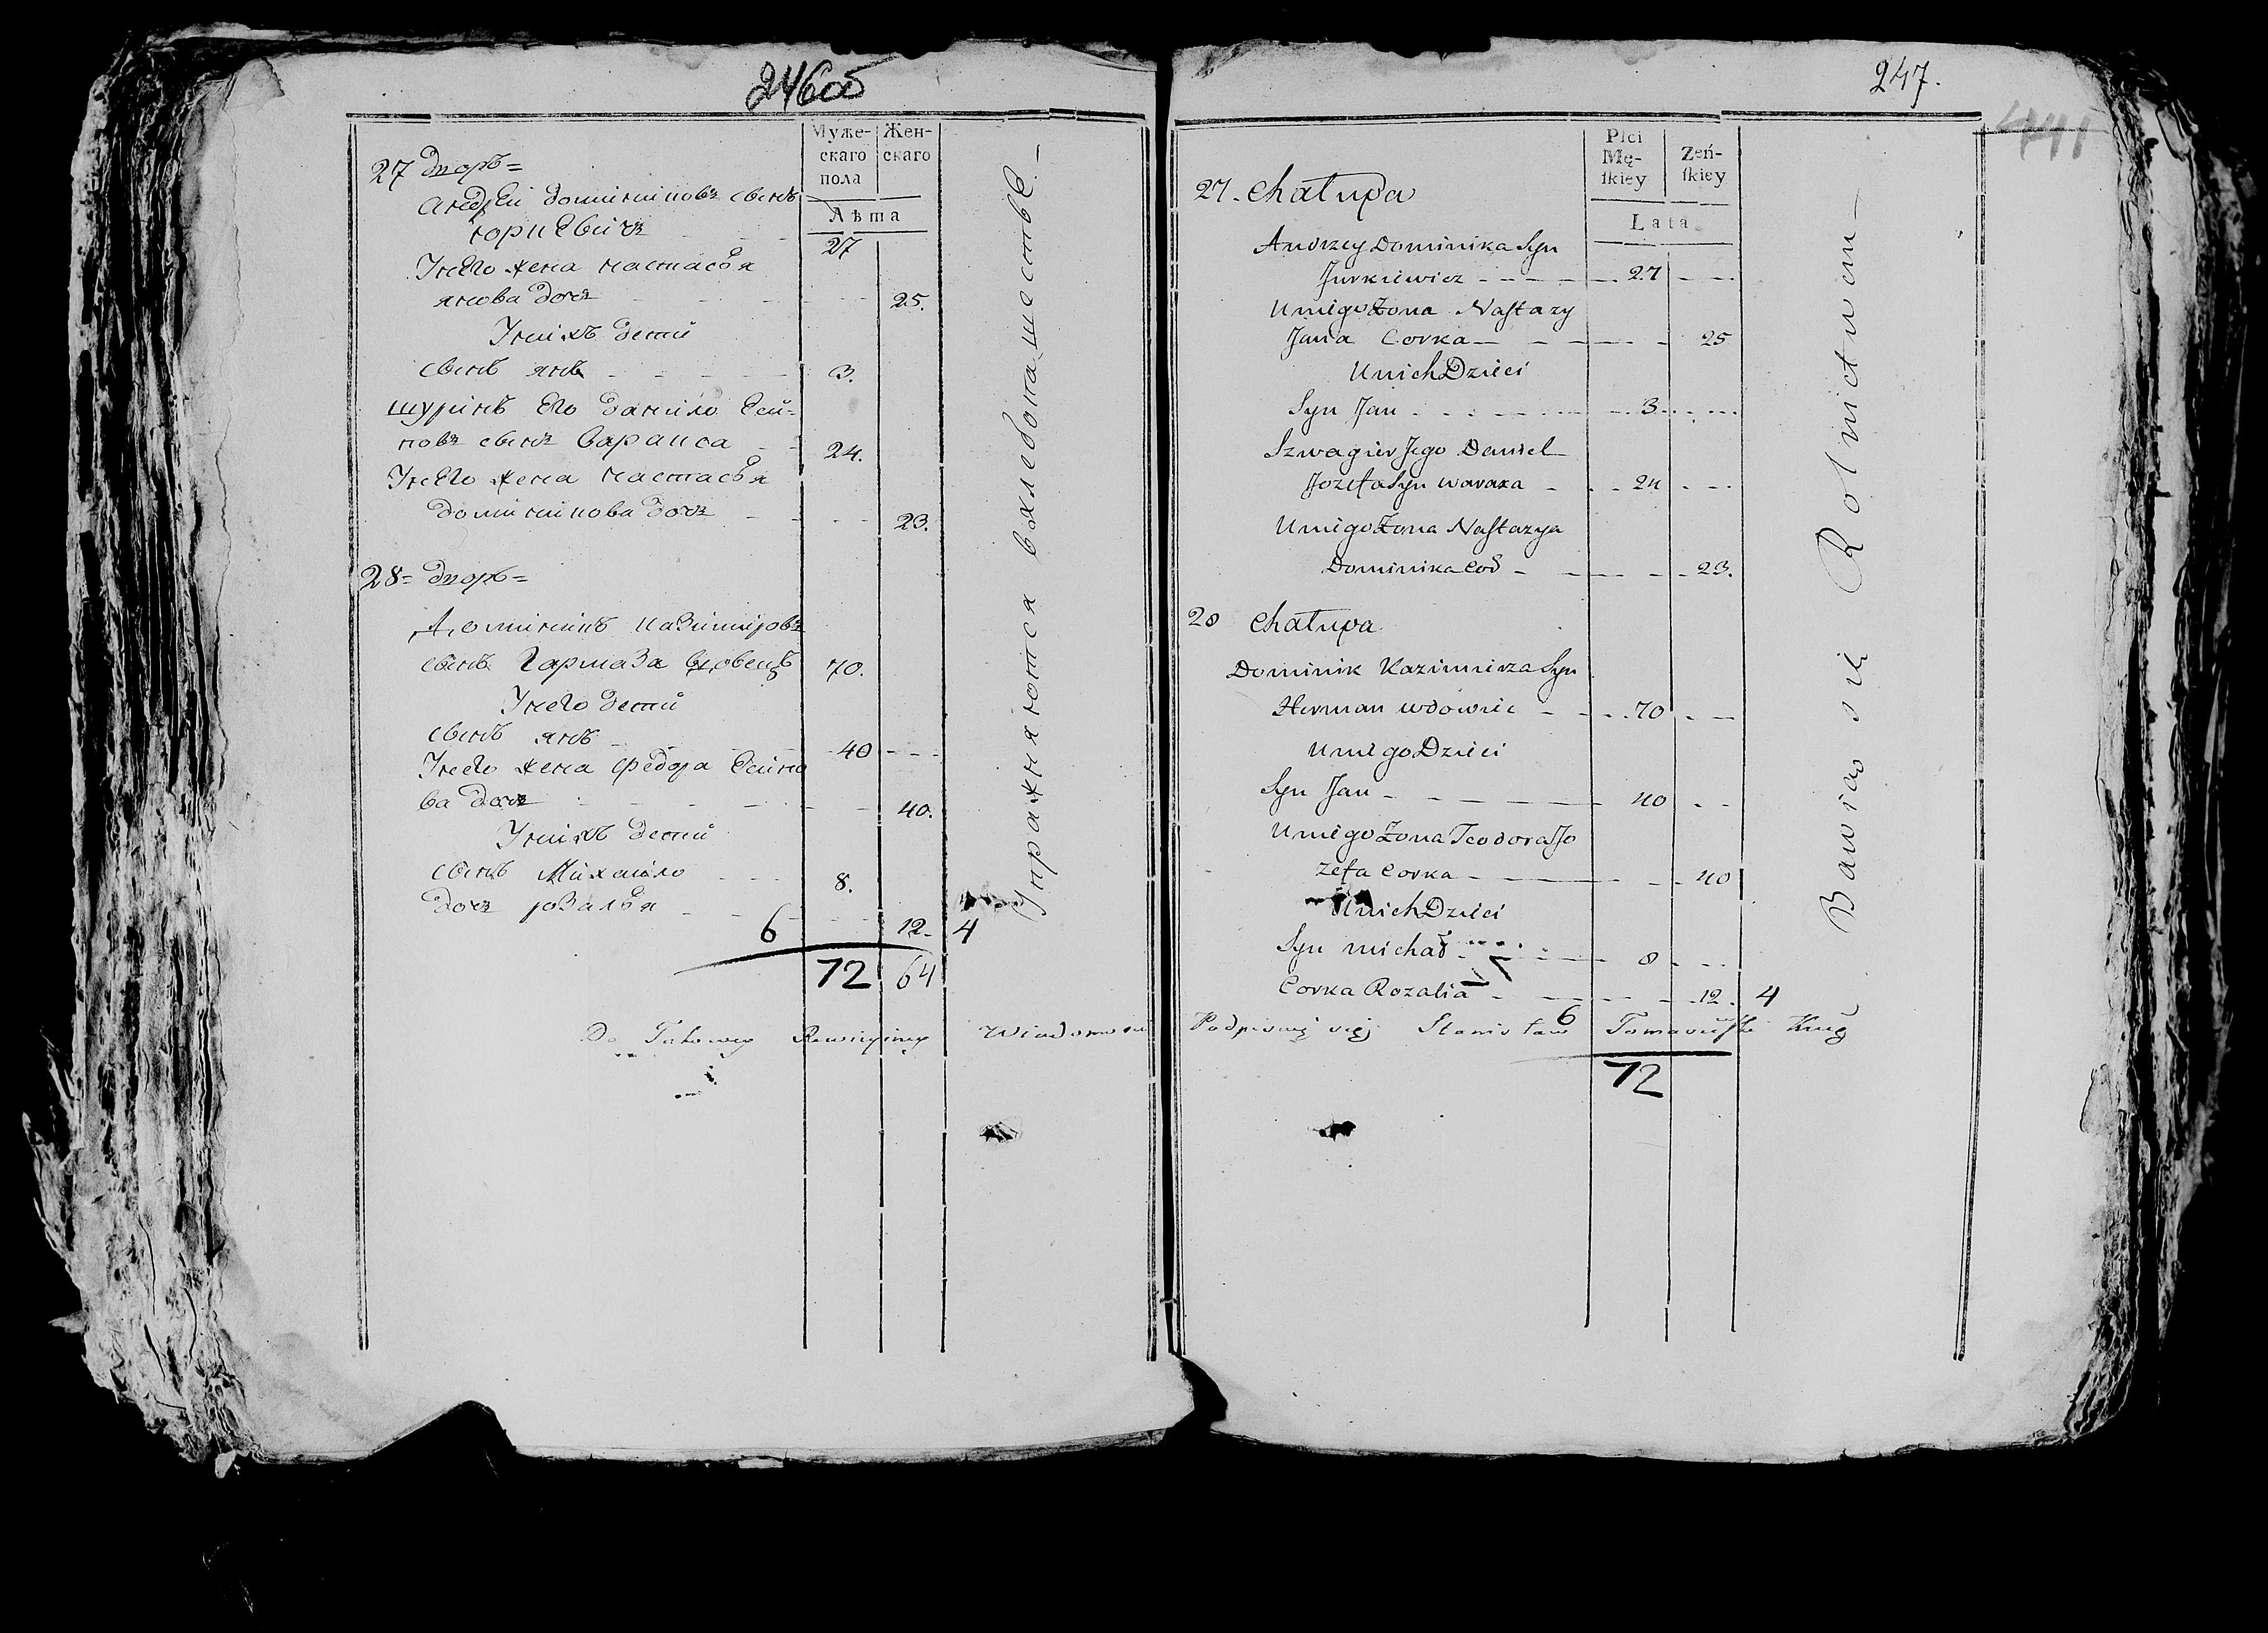 246об
Муже-
скаго
пола
Жен-
скаго
Лѣта
27 дворъ=
Андрей доминиковъ сынъ
юркевичъ 27
Унего жена настасья
янова дочь 25.
Уних детй
сынъ янъ 3.
шуринъ Его данило Оси-
повъ сынъ Варакса 24.
Унего жена настасья
доминикова дочь 23.
28= дворъ=
Доминикъ казимировъ
сынъ вдовецъ 70.
Унего детй
сынъ янъ 40
Унего жена федора Осипо
ва дочь 40.
Унихъ детй
сынъ Михайло 8.
дочь розалья 12.
6 4
72 64
Упражняются вхлебопашестве.—
247.
441
Płci
Mę-
ſkiey
Żeń-
ſkiey
Lata
27. Chałupa
Andrzey Dominika Syn
Jurkiewicz 27
Uniego Żona Nastazy
Jana Corka 25
Unich Dzieci
Syn Jan 3
Szwagier Jego Daniel
Jozefa Syn waraxa 24
Uniego Żona Nastazya
Dominika Cod 23.
28 Chałupa
Dominik Kazimierza Syn
Herman wdowiec 70
Uniego Dzieci
Syn Jan 40
Uniego Żona Teodora Jo
zefa Corka 40
Unich Dzieci
Syn michał 8
Corka Rozalia 12. 4
6
72
Bawiąo się Rolnictwem—
Do Takowey Rewizyiney Podpisuię się Stanisław